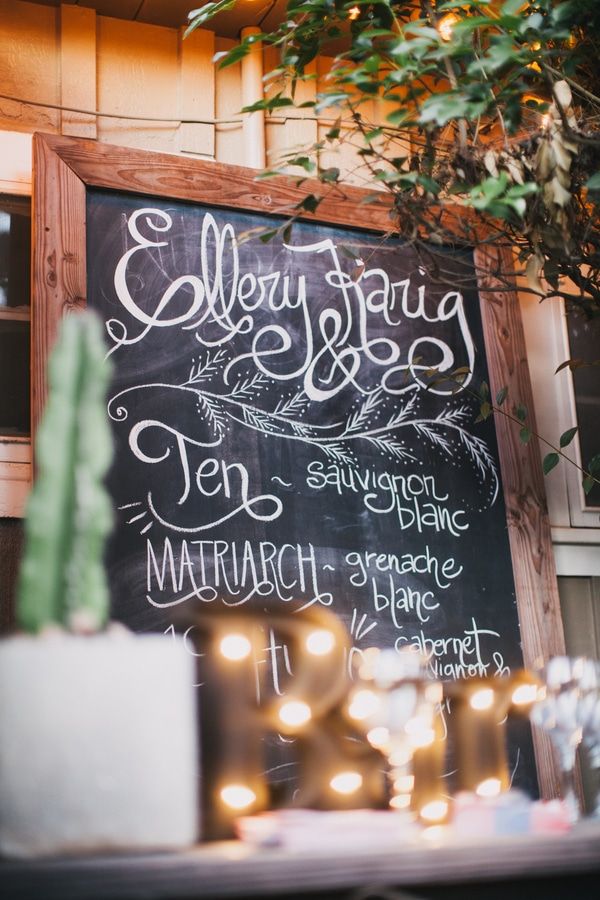 Ellery Harig
&
Ten ~ sauvignon
blanc
MATRIARCH ~ grenache
blanc
cabernet
sauvignon &